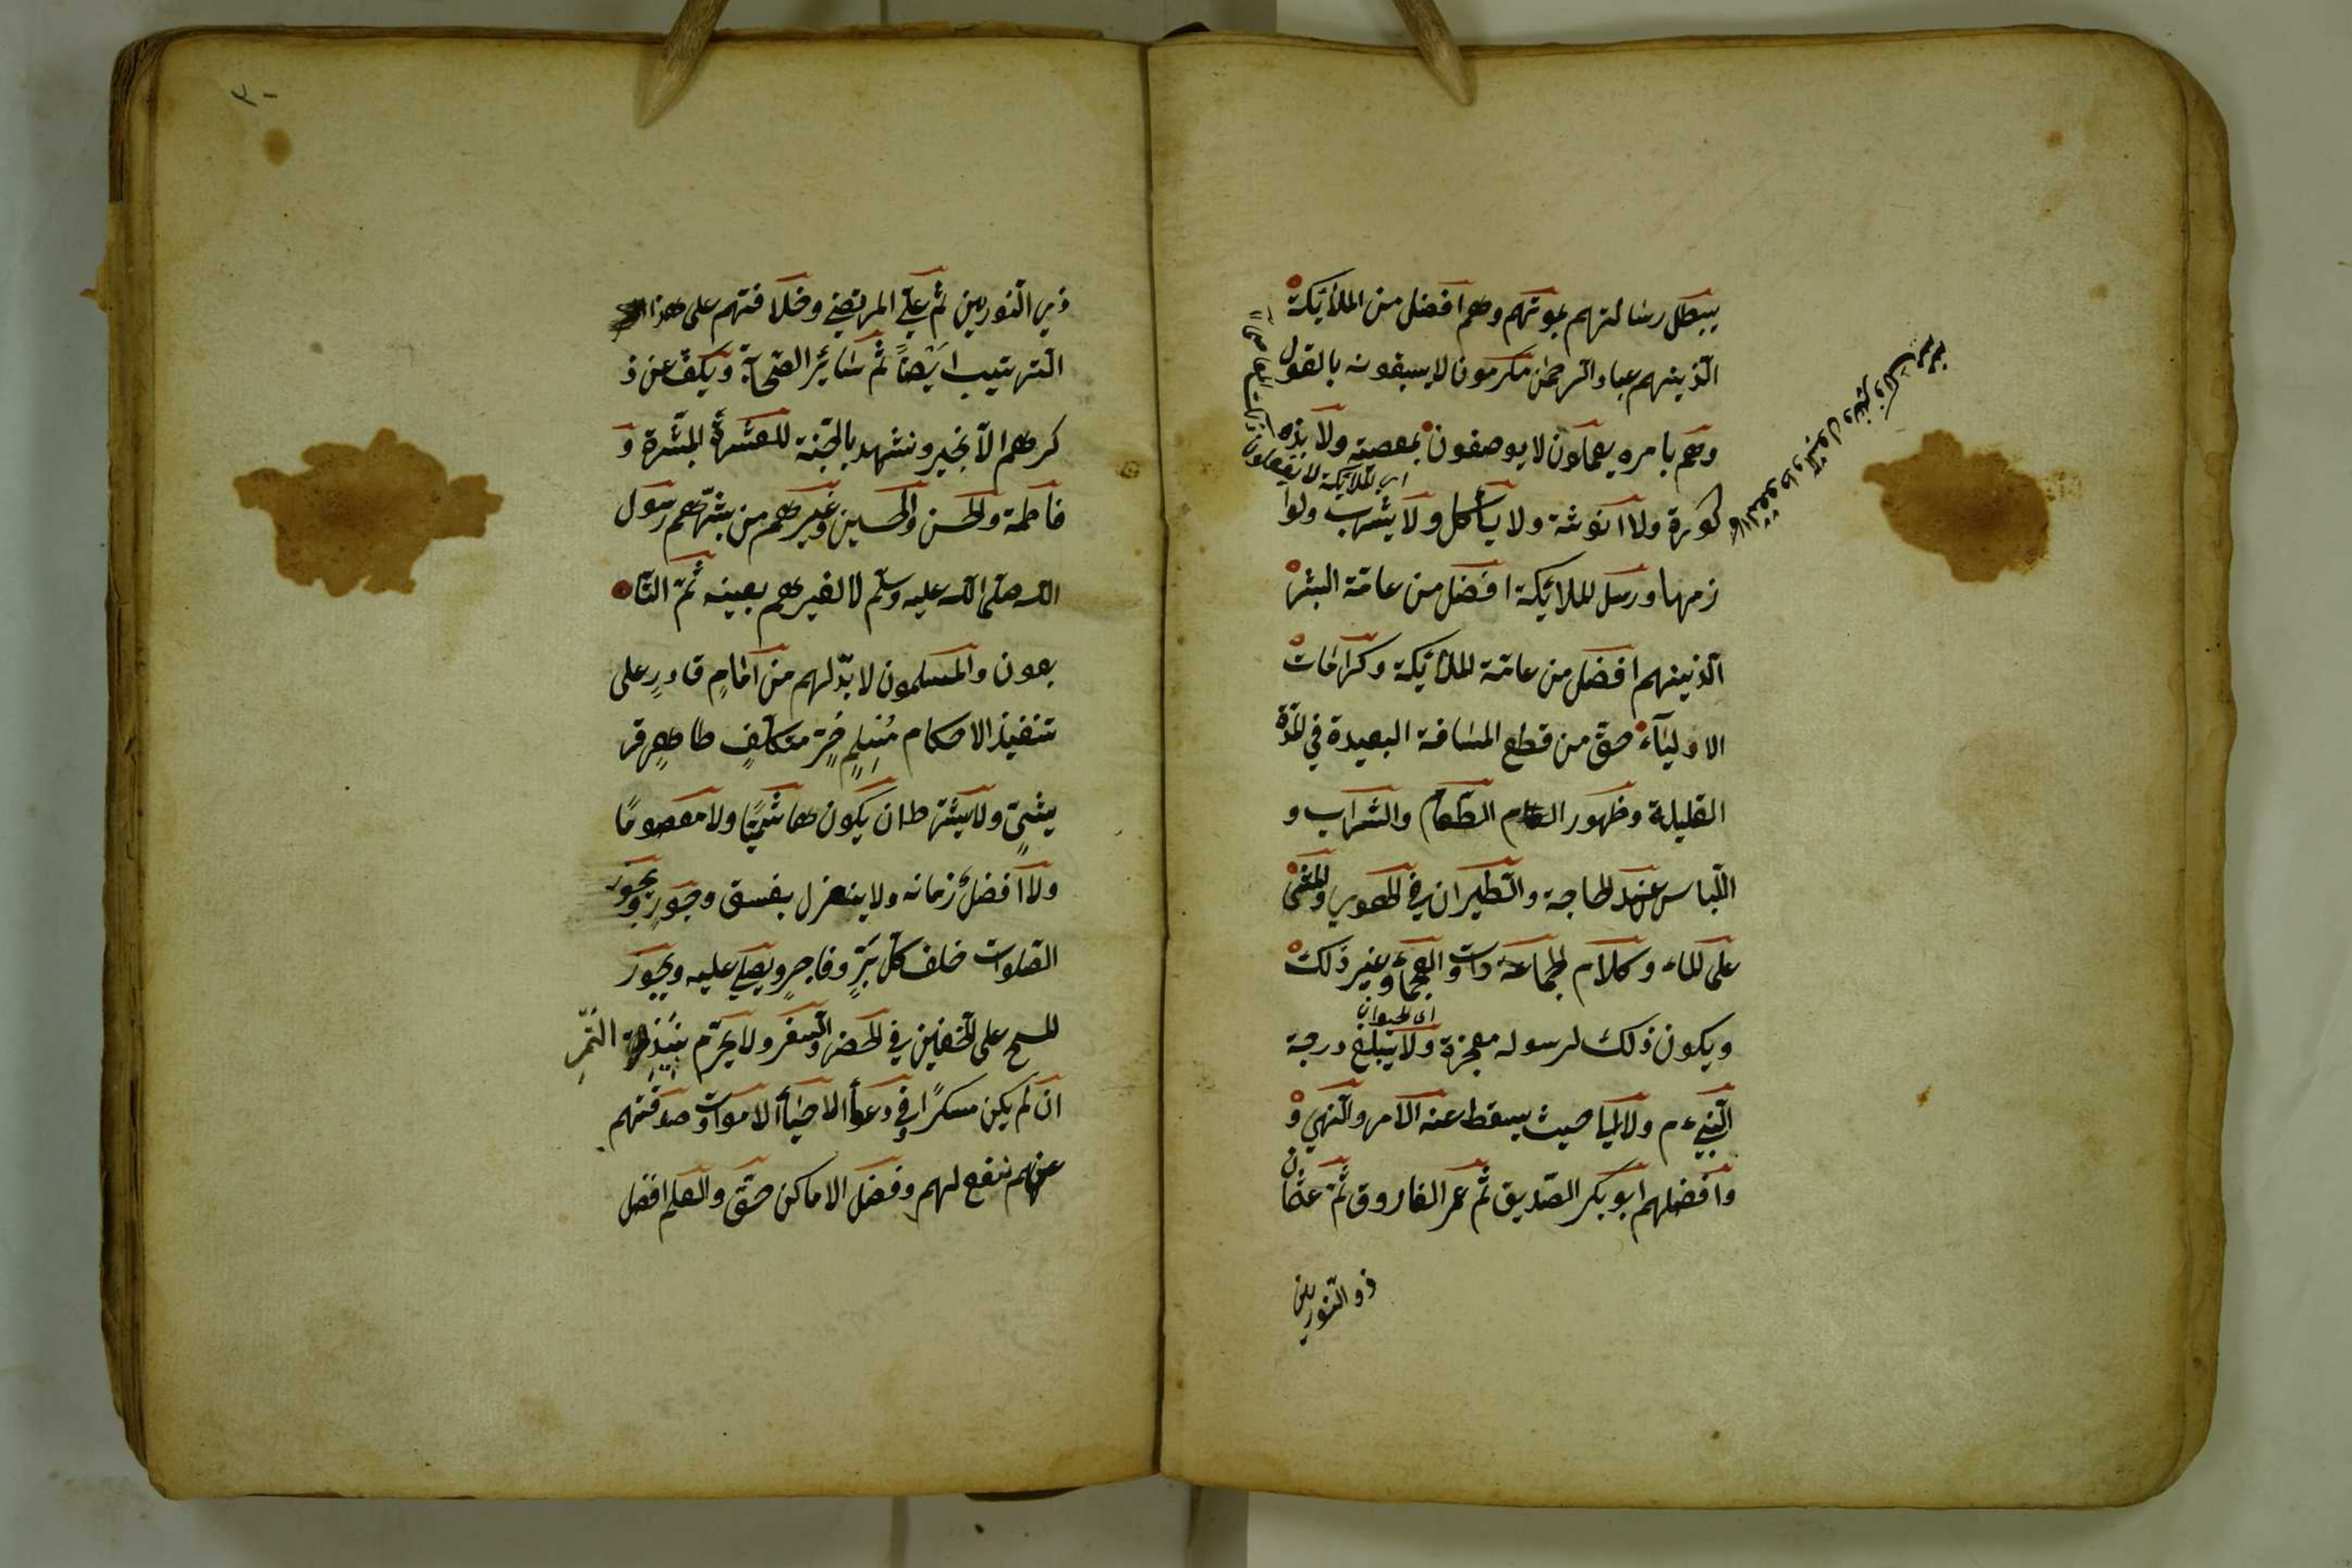 يبطل رسالتهم بموتهم وهم افضل من الملائكة
الذينهم عباد الرحمن مكرمون لا يسبقونه بالقول
وهم بامره يعملون لا يوصفون بمعصية ولا بذ
كورة ولا انوثة ولا يأكل ولا يشرب ولوا
اي الملائكة لا يفعلون ذلك
زمها ورسل الملائكة افضل من عامة البشر
الذينهم افضل من عامة الملائكة وكرامات
الاولياء حق من قطع المسافة البعيدة في المدة
القليلة وظهور الطعام والشراب و
اللباس عند الحاجة والطيران في الهوي والمشي
على الماء وكلام الجمادات والعجماء وغير ذلك
اي الحيوان
ويكون ذلك لرسوله معجزة ولا يبلغ درجة
النبيء م ولا الى حيث يسقط عنه الامر والنهي و
وافضلهم ابو بكر الصديق ثم عمر الفاروق ثم عثمان
ذو النورين
٣٠
ذي النورين ثم علي المرتضي وخلافتهم على هذا
الترتيب ايضاً ثم سائر الصحابة ويكف عن ذ
كرهم الا بخير ونشهد بالجنة للعشرة المبشرة و
فاطمة والحسن والحسين وغيرهم من بشرهم رسول
الله صلى الله عليه وسلم لا لغيرهم بعينه ثم التا
بعون والمسلمون لا بد لهم من امام قادرٍ على
تنفيذ الاحكام مسلمٍ حرٍ مكلفٍ ظاهرٍ قر
يشيٍ ولا يشترط ان يكون هاشميًا ولا معصومًا
ولا افضل زمانه ولا ينعزل بفسق وجور وتجوز
الصلوات خلف كل برٍ وفاجرٍ ويصلي عليه ويجوز
المسح على الخفين في الحضر والسفر ولا يحرم نبيذ التمر
ان لم يكن مسكرًا وفي دعاء الاحياء الاموات وصدقتهم
عنهم نفع لهم وفضل الاماكن حق والعلم افضل